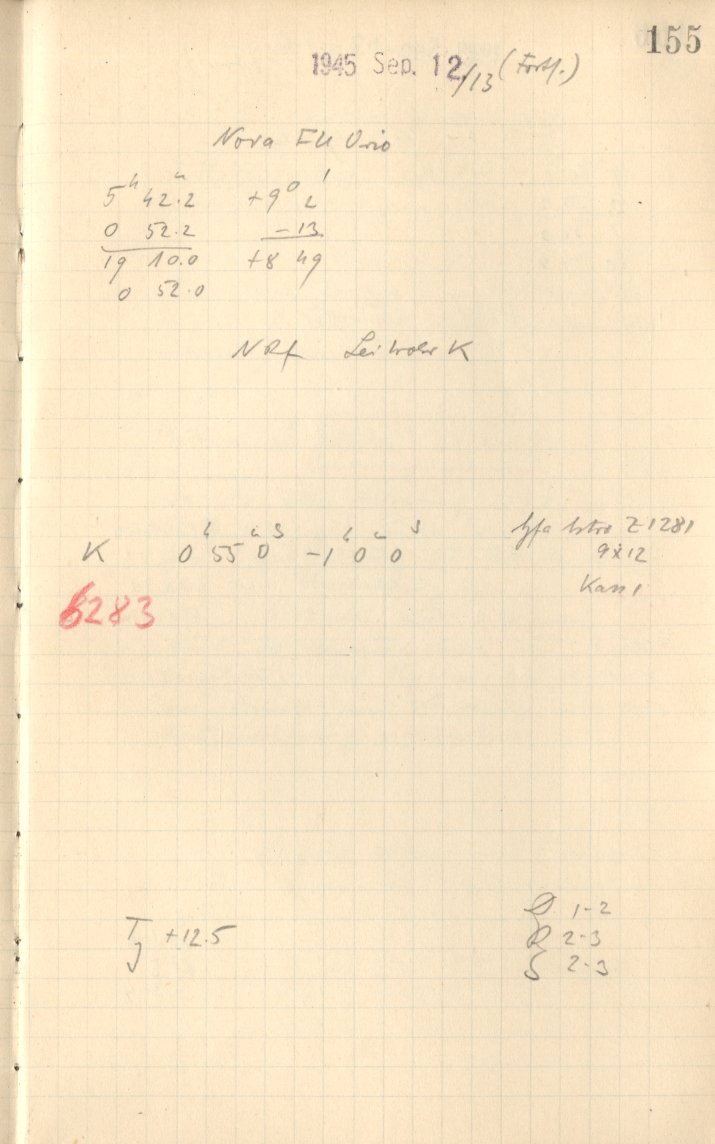 155
1945 Sep. 12/13 (Forts.)
Nova FU Orio
5ʰ 42.2ᵐ +9° 2'
0 52.2 -13
19 10.0 +8 49
0 52.0
NRf Leitrohr K
K 0ʰ 55ᵐ 0ˢ -1ʰ 0ᵐ 0ˢ
Agfa Astro Z1281
9x12
Kass 1
6283
Tg +12.5
D 1-2
R 2-3
S 2-3